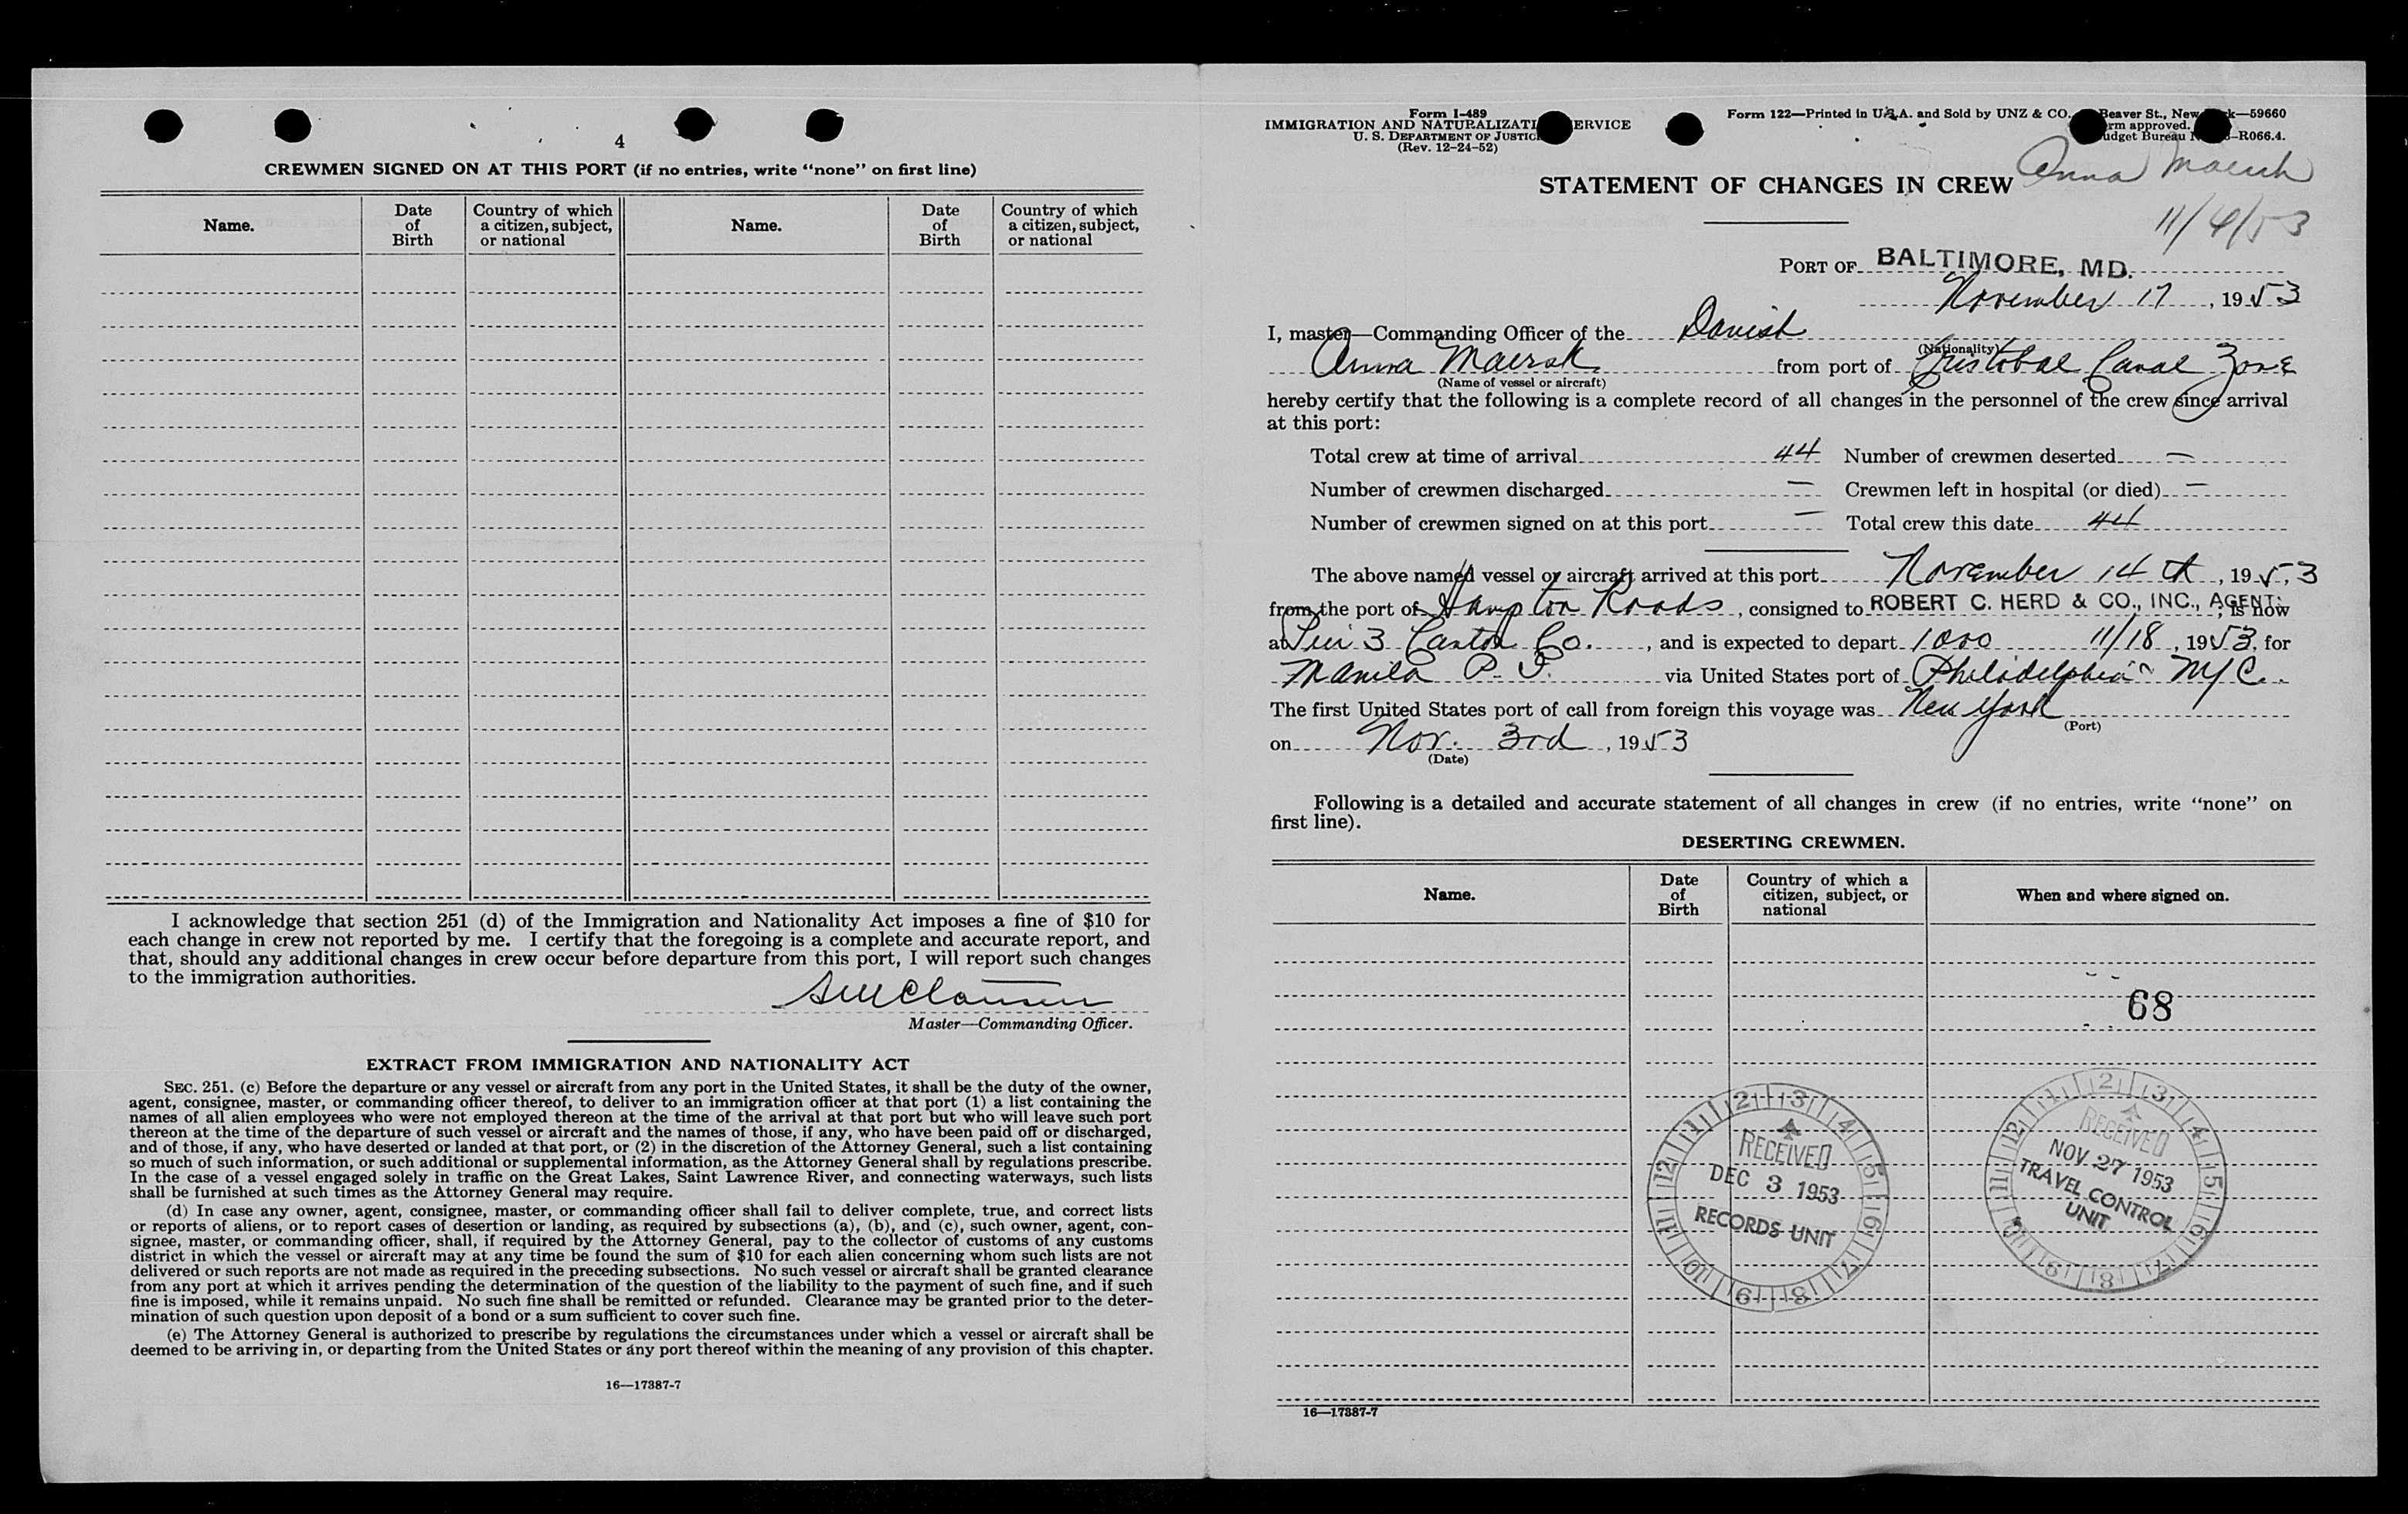 4
CREWMEN SIGNED ON AT THIS PORT (if no entries, write "none" on first line)
Name. Date of Birth Country of which a citizen, subject, or national Name. Date of Birth Country of which a citizen, subject, or national
I acknowledge that section 251 (d) of the Immigration and Nationality Act imposes a fine of $10 for
each change in crew not reported by me. I certify that the foregoing is a complete and accurate report, and
that, should any additional changes in crew occur before departure from this port, I will report such changes
to the immigration authorities.
Clausen
Master—Commanding Officer.
EXTRACT FROM IMMIGRATION AND NATIONALITY ACT
SEC. 251. (c) Before the departure or any vessel or aircraft from any port in the United States, it shall be the duty of the owner,
agent, consignee, master, or commanding officer thereof, to deliver to an immigration officer at that port (1) a list containing the
names of all alien employees who were not employed thereon at the time of the arrival at that port but who will leave such port
thereon at the time of the departure of such vessel or aircraft and the names of those, if any, who have been paid off or discharged,
and of those, if any, who have deserted or landed at that port, or (2) in the discretion of the Attorney General, such a list containing
so much of such information, or such additional or supplemental information, as the Attorney General shall by regulations prescribe.
In the case of a vessel engaged solely in traffic on the Great Lakes, Saint Lawrence River, and connecting waterways, such lists
shall be furnished at such times as the Attorney General may require.
(d) In case any owner, agent, consignee, master, or commanding officer shall fail to deliver complete, true, and correct lists
or reports of aliens, or to report cases of desertion or landing, as required by subsections (a), (b), and (c), such owner, agent, con-
signee, master, or commanding officer, shall, if required by the Attorney General, pay to the collector of customs of any customs
district in which the vessel or aircraft may at any time be found the sum of $10 for each alien concerning whom such lists are not
delivered or such reports are not made as required in the preceding subsections. No such vessel or aircraft shall be granted clearance
from any port at which it arrives pending the determination of the question of the liability to the payment of such fine, and if such
fine is imposed, while it remains unpaid. No such fine shall be remitted or refunded. Clearance may be granted prior to the deter-
mination of such question upon deposit of a bond or a sum sufficient to cover such fine.
(e) The Attorney General is authorized to prescribe by regulations the circumstances under which a vessel or aircraft shall be
deemed to be arriving in, or departing from the United States or any port thereof within the meaning of any provision of this chapter.
16—17387-7
Form I-489
IMMIGRATION AND NATURALIZATI ERVICE
U. S. DEPARTMENT OF JUSTIC
(Rev. 12-24-52)
Form 122—Printed in U.S.A. and Sold by UNZ & CO. Beaver St., New k—59660
rm approved.
udget Bureau –R066.4.
Anna Maersk
11/4/53
STATEMENT OF CHANGES IN CREW
PORT OF BALTIMORE, MD.
November 17, 1953
I, master—Commanding Officer of the Danish
(Nationality)
Anna Maersk from port of Cristobal Canal Zone
(Name of vessel or aircraft)
hereby certify that the following is a complete record of all changes in the personnel of the crew since arrival
at this port:
Total crew at time of arrival 44 Number of crewmen deserted —
Number of crewmen discharged — Crewmen left in hospital (or died) —
Number of crewmen signed on at this port — Total crew this date 44
The above named vessel or aircraft arrived at this port November 14th, 1953
from the port of Hampton Roads, consigned to ROBERT C. HERD & CO., INC., AGENT; is now
at Pier 3 Canton Co., and is expected to depart 1000 11/18, 1953, for
Manila P. I. via United States port of Philadelphia NYC.
The first United States port of call from foreign this voyage was New York
(Port)
on Nov. 3rd, 1953
(Date)
Following is a detailed and accurate statement of all changes in crew (if no entries, write "none" on
first line).
DESERTING CREWMEN.
Name. Date of Birth Country of which a citizen, subject, or national When and where signed on.
68
RECEIVED
DEC 3 1953
RECORDS UNIT
1 2 3 4 5 6 7 8 9 10 11 12
RECEIVED
NOV 27 1953
TRAVEL CONTROL
UNIT
1 2 3 4 5 6 7 8 9 10 11 12
16—17387-7